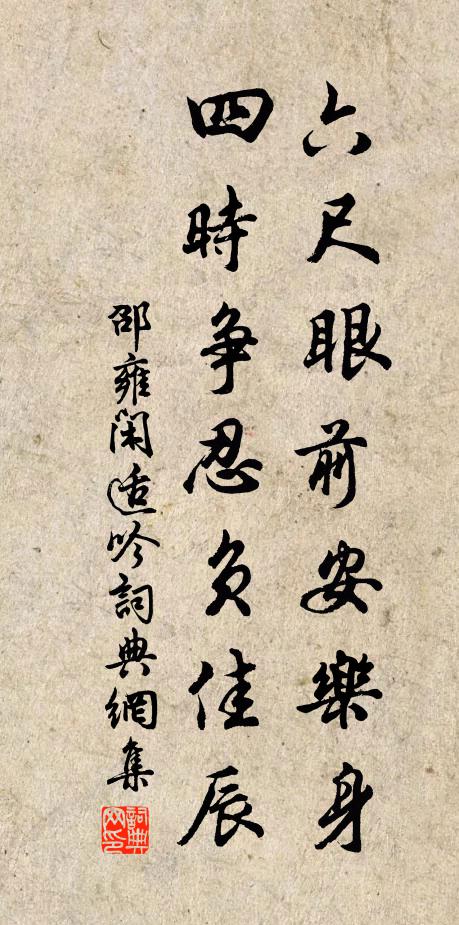 六尺眼前安樂身
四時爭忍負佳辰
邵雍閑適吟詞典網集
詞典網印